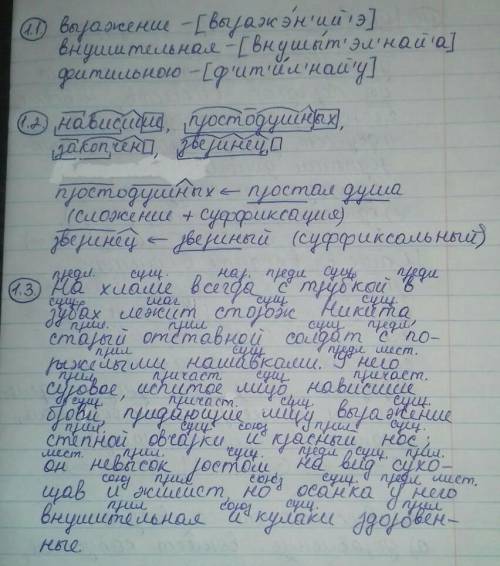 1.1 выражение – [выражэ́н'ий'э]
внушительная – [внушы́т'эл'най'а]
фитильною – [ф'ит'и́л'най'у]
1.2 нависшие, простодушных,
закопчен, зверинец
простодушных ← простая душа
(сложение + суффиксация)
зверинец ← звериный (суффиксальный)
предл. сущ. нар. предл сущ. предл
1.3 На хламе всегда с трубкой в
сущ. глаг сущ. сущ.
зубах лежит сторож Никита
прил. прил сущ. предл.
старый отставной солдат с по-
прил сущ предл мест.
рыжелыми нашивками. У него
прил причаст. сущ. причаст.
суровое, испитое лицо нависшие
сущ. причаст. сущ. сущ.
брови придающие лицу выражение
прил. сущ союз прил сущ.
степной овчарки и красный нос;
мест. прил. сущ. предл сущ. прил.
он невысок ростом, на вид сухо-
союз прил союз сущ. предл мест.
щав и жилист, но осанка у него
прил союз сущ. прил
внушительная и кулаки здоровен-
ные.